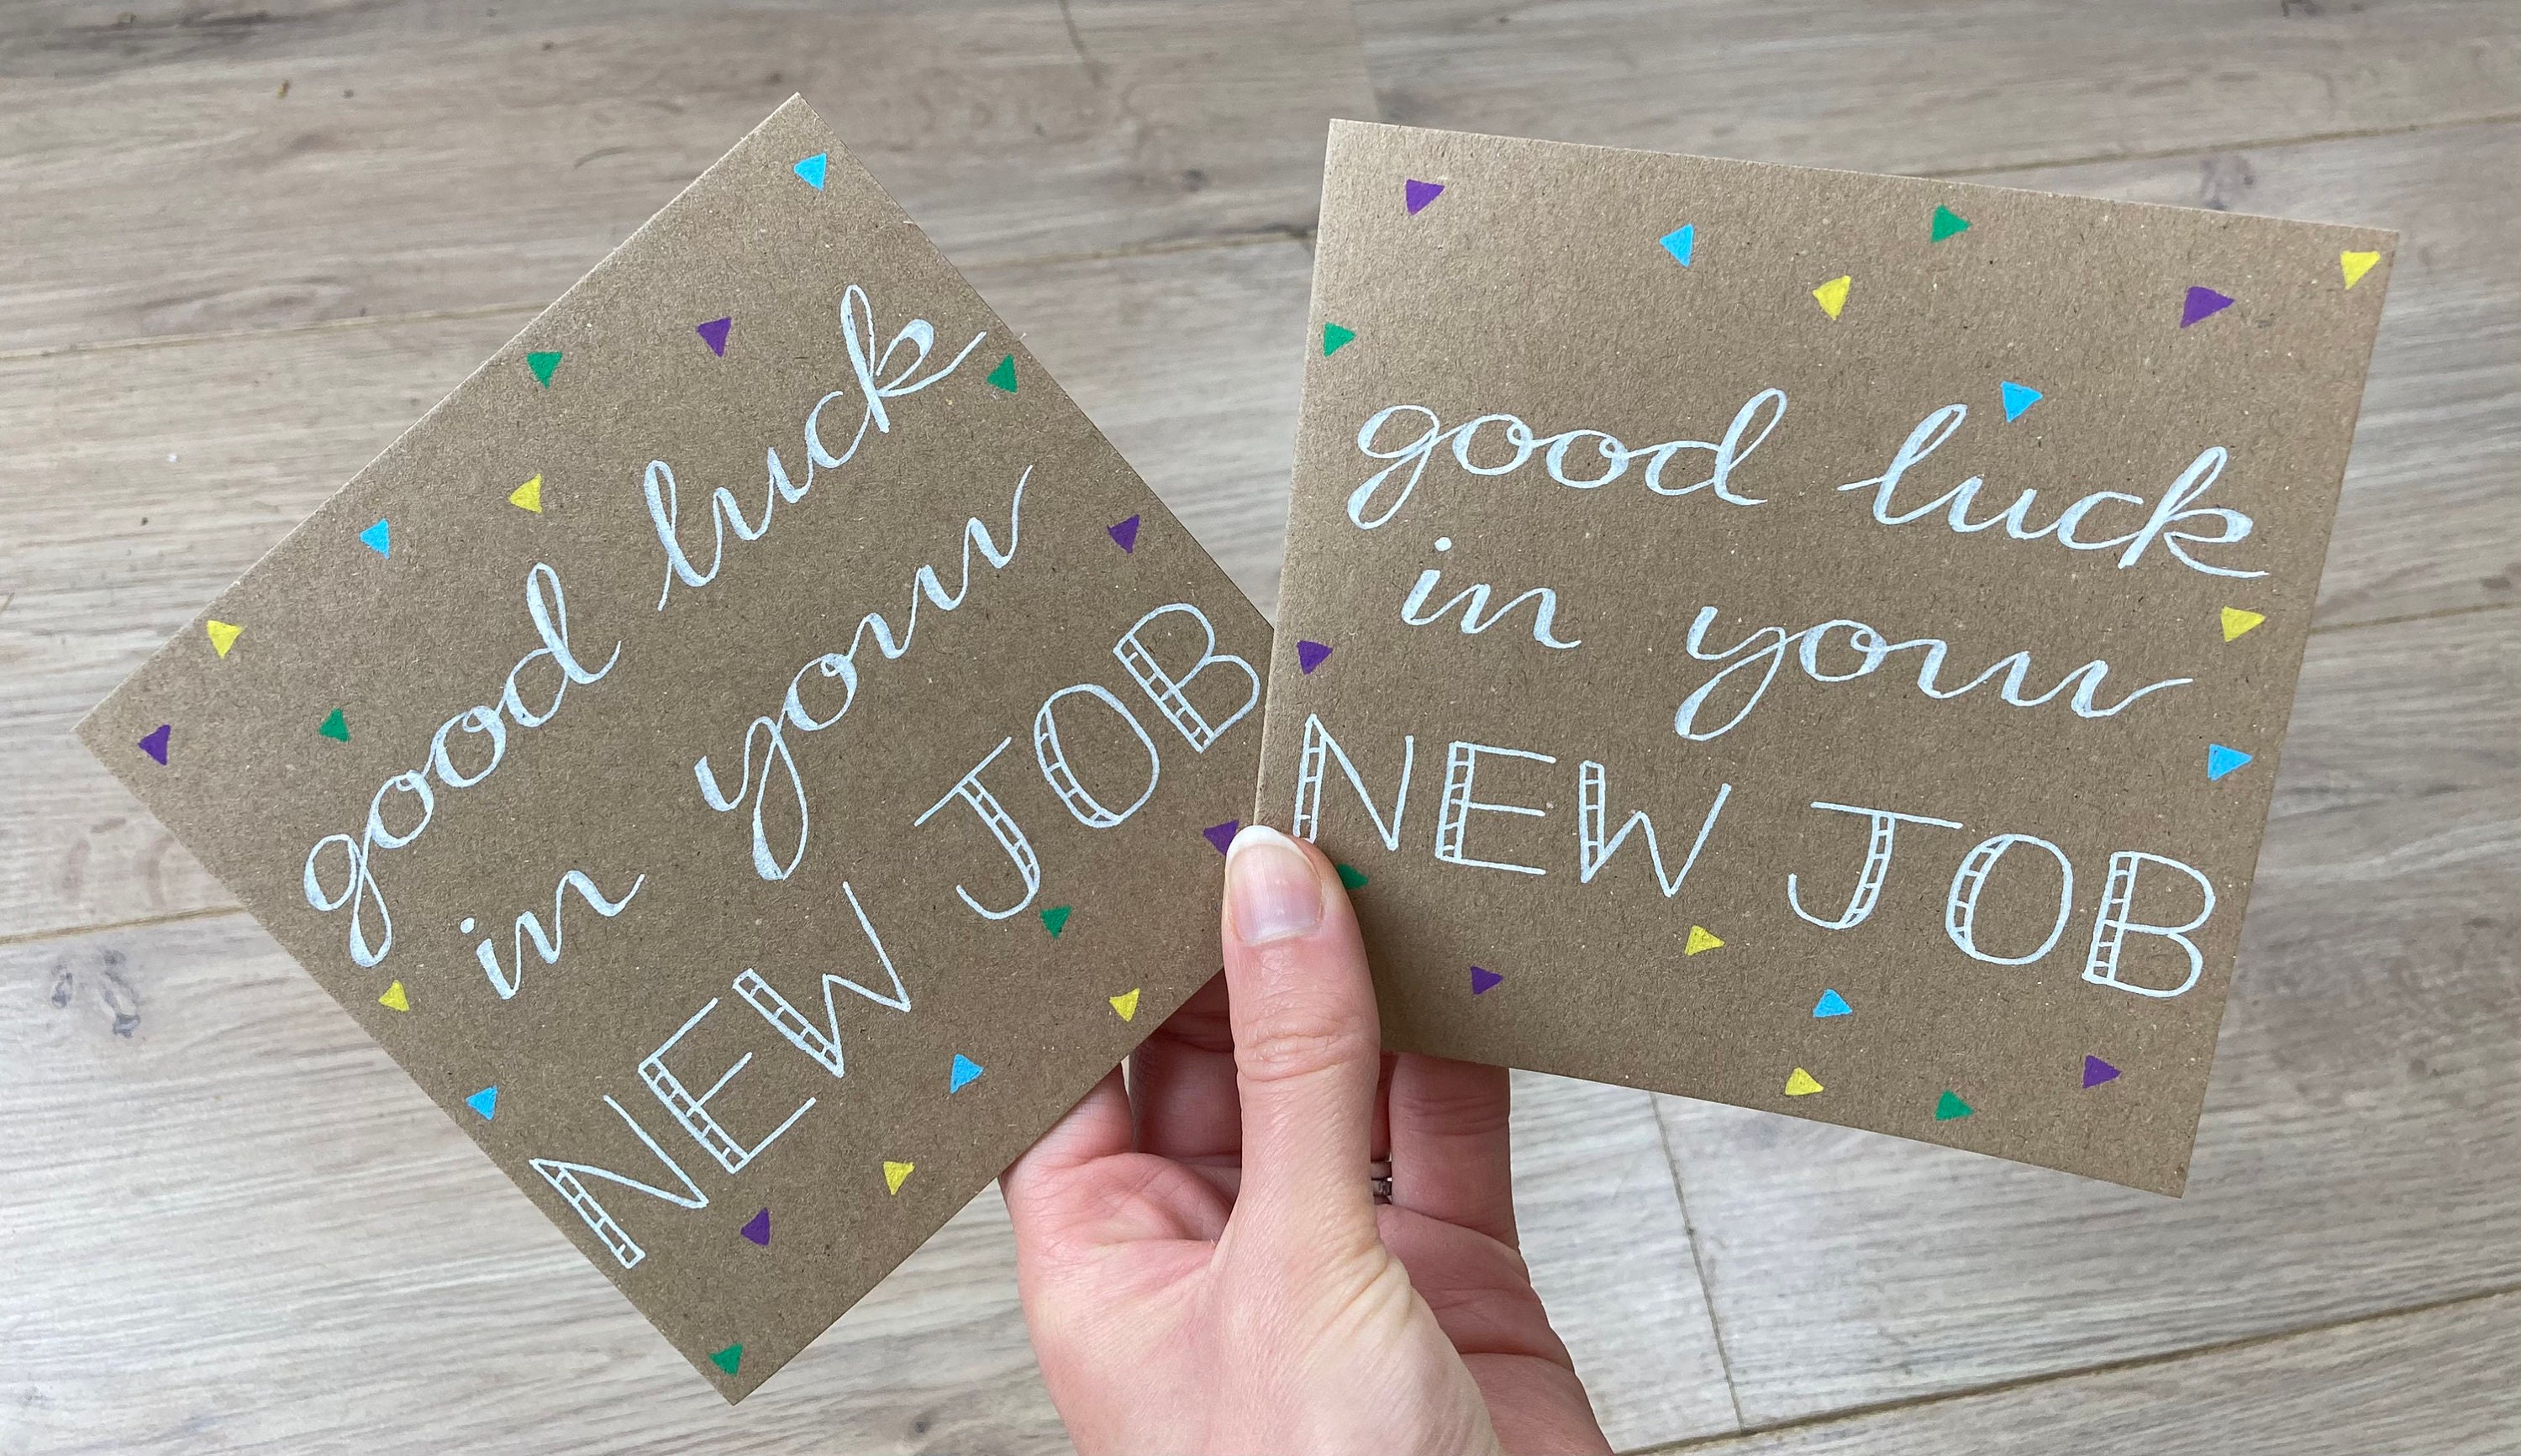 good luck
in your
NEW JOB
good luck
in your
NEW JOB